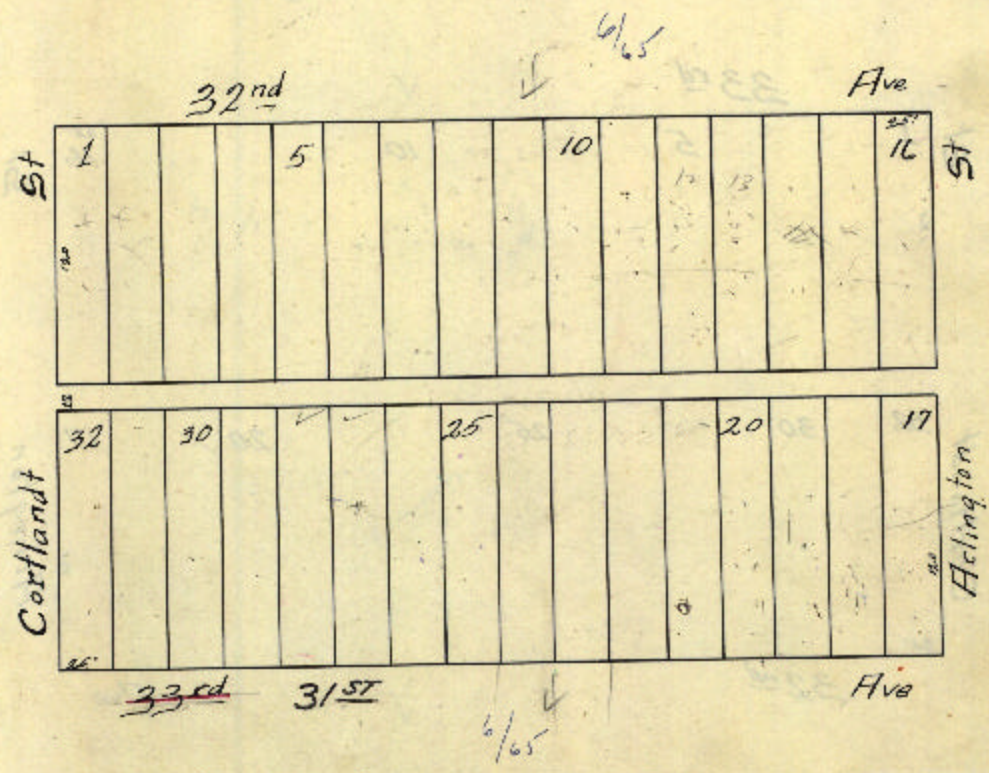 6/65
32nd Ave
St 1 5 10 25' 16 St
12 13
120
13
32 30 25 20 17
Cortlandt Aclington
120
25'
33rd 31ST Ave
6/65